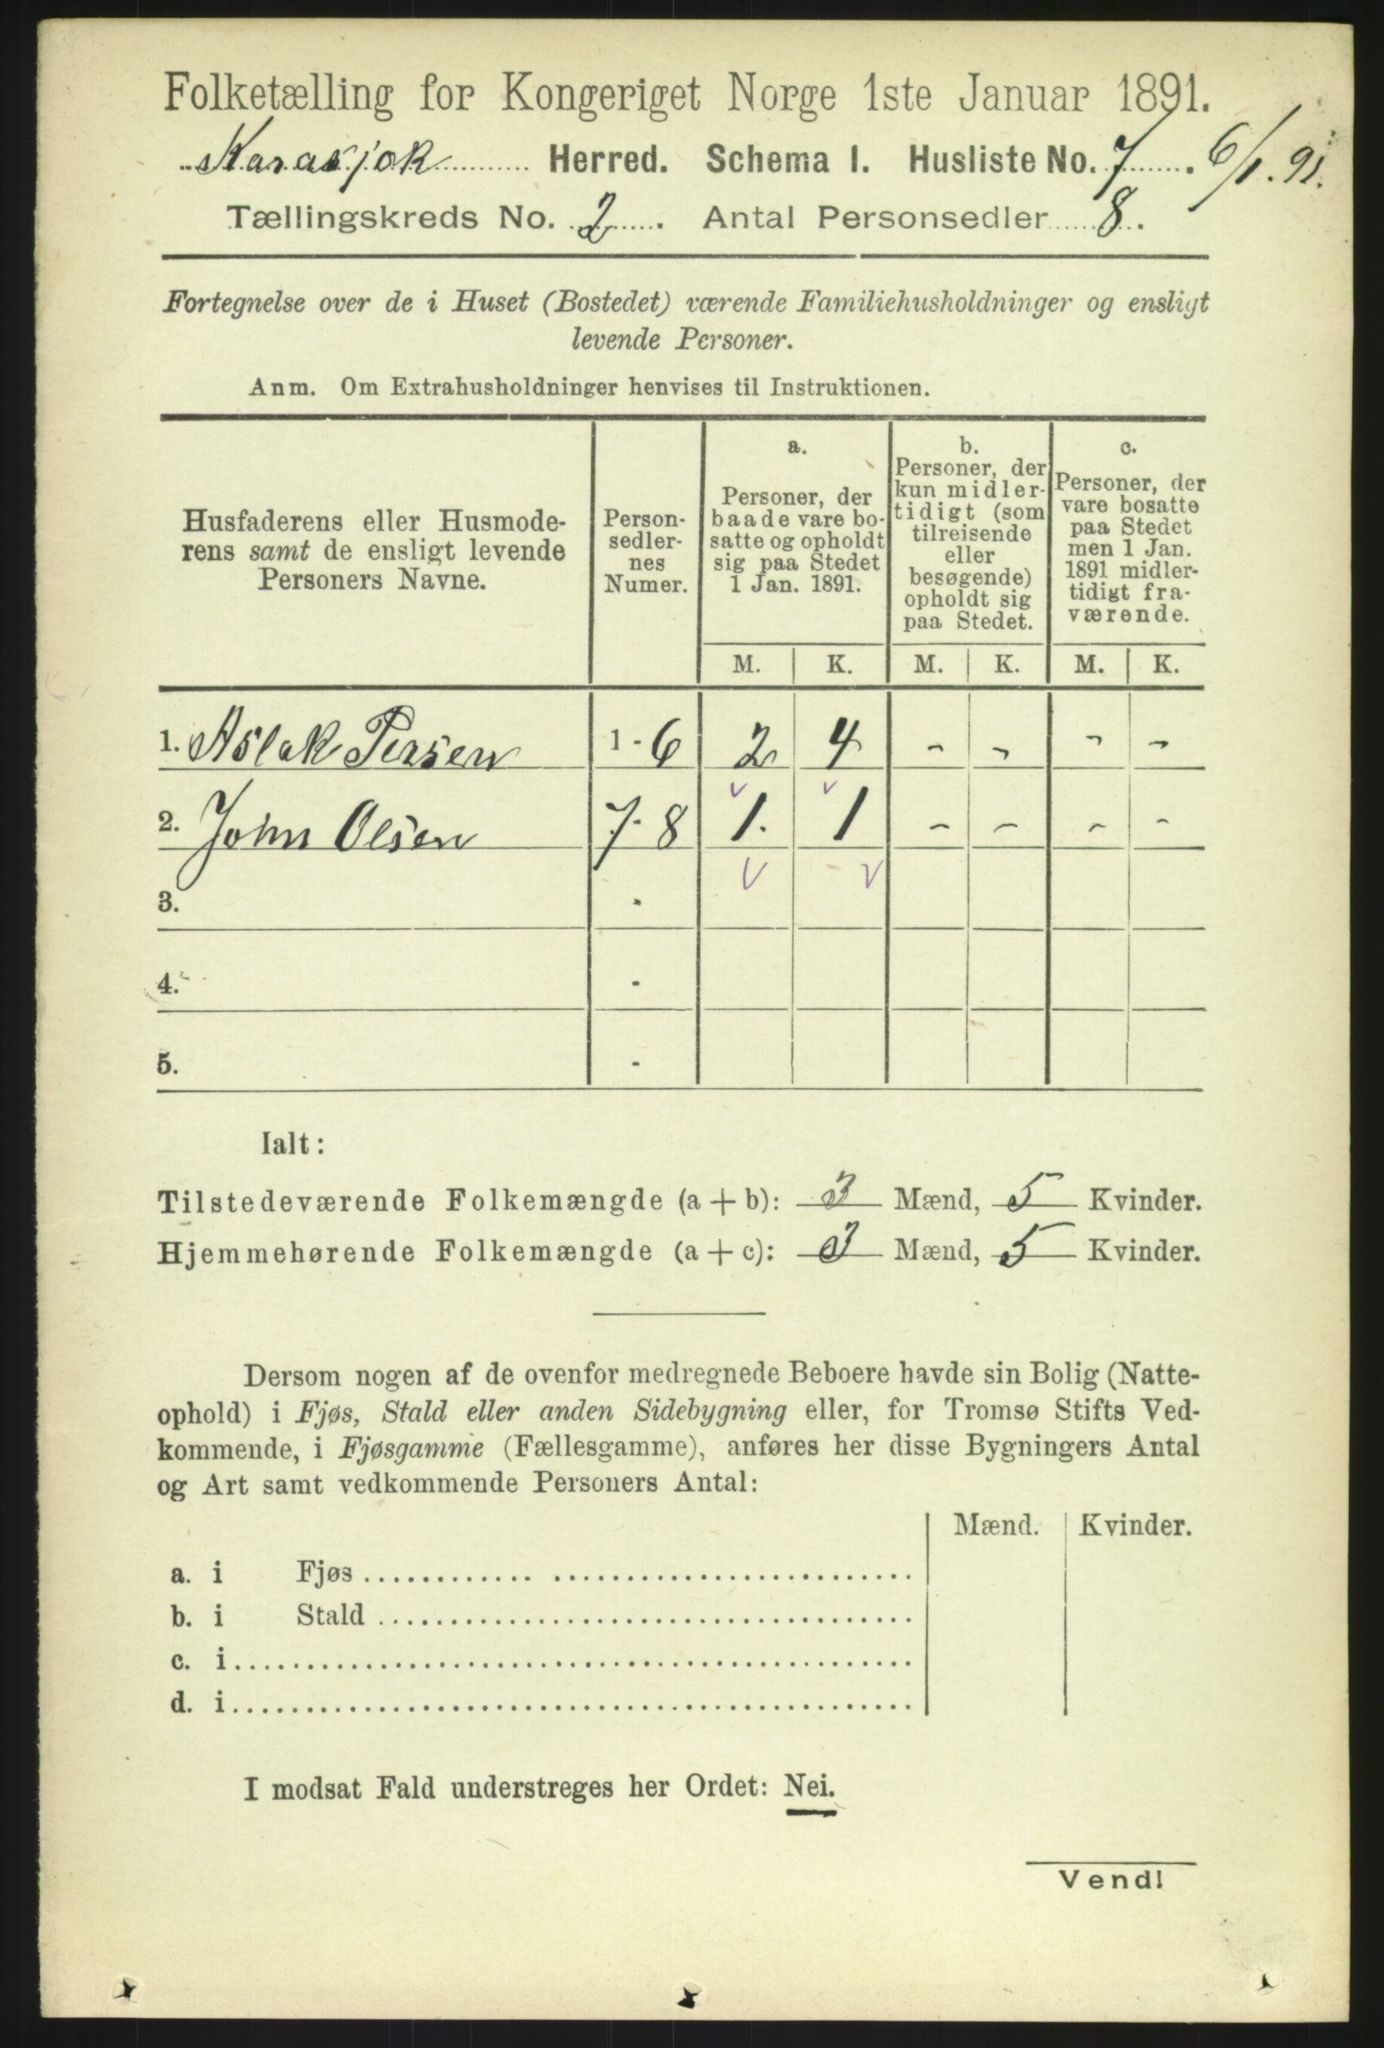 Folketælling for Kongeriget Norge 1ste Januar 1891.
Karasjok Herred. Schema I. Husliste No. 7. 6/1. 91.
Tællingskreds No. 2. Antal Personsedler 8.
Fortegnelse over de i Huset (Bostedet) værende Familiehusholdninger og ensligt
levende Personer.
Anm. Om Extrahusholdninger henvises til Instruktionen.
Husfaderens eller Husmode-
rens samt de ensligt levende
Personers Navne.
Person-
sedler-
nes
Numer.
a.
Personer, der
baade vare bo-
satte og opholdt
sig paa Stedet
1 Jan. 1891.
b.
Personer, der
kun midler-
tidigt (som
tilreisende
eller
besøgende)
opholdt sig
paa Stedet.
c.
Personer, der
vare bosatte
paa Stedet
men 1 Jan.
1891 midler-
tidigt fra-
værende.
M. K. M. K. M. K.
1. Aslak Persen 1-6 2 4 - - - -
2. John Olsen 7-8 1. 1 - - - -
3. -
4. -
5. -
Ialt:
Tilstedeværende Folkemængde (a + b): 3 Mænd, 5 Kvinder.
Hjemmehørende Folkemængde (a + c): 3 Mænd, 5 Kvinder.
Dersom nogen af de ovenfor medregnede Beboere havde sin Bolig (Natte-
ophold) i Fjøs, Stald eller anden Sidebygning eller, for Tromsø Stifts Ved-
kommende, i Fjøsgamme (Fællesgamme), anføres her disse Bygningers Antal
og Art samt vedkommende Personers Antal:
Mænd. Kvinder.
a. i Fjøs
b. i Stald
c. i
d. i
I modsat Fald understreges her Ordet: Nei.
Vend!